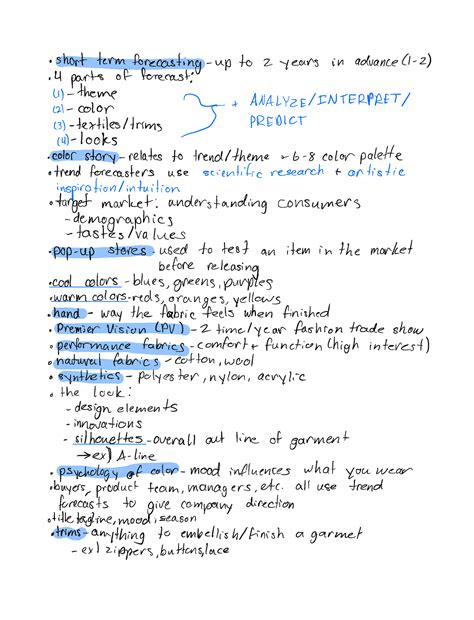 • short term forecasting - up to 2 years in advance (1-2)
• 4 parts of forecast:
(1) - theme
(2) - color
(3) - textiles/trims
(4) - looks
+ ANALYZE/INTERPRET/
PREDICT
• color story - relates to trend/theme - 6-8 color palette
• trend forecasters use scientific research + artistic
inspiration/intuition
• target market: understanding consumers
- demographics
- tastes/values
• pop-up stores - used to test an item in the market
before releasing
• cool colors - blues, greens, purples
• warm colors - reds, oranges, yellows
• hand - way the fabric feels when finished
• Premier Vision (PV) - 2 time/year fashion trade show
• performance fabrics - comfort + function (high interest)
• natural fabrics - cotton, wool
• synthetics - polyester, nylon, acrylic
• the look:
- design elements
- innovations
- silhouettes - overall out line of garment
→ ex) A-line
• psychology of color - mood influences what you wear
• buyers, product team, managers, etc. all use trend
forecasts to give company direction
• title, tagline, mood, season
• trims - anything to embellish/finish a garmet
- ex) zippers, buttons, lace